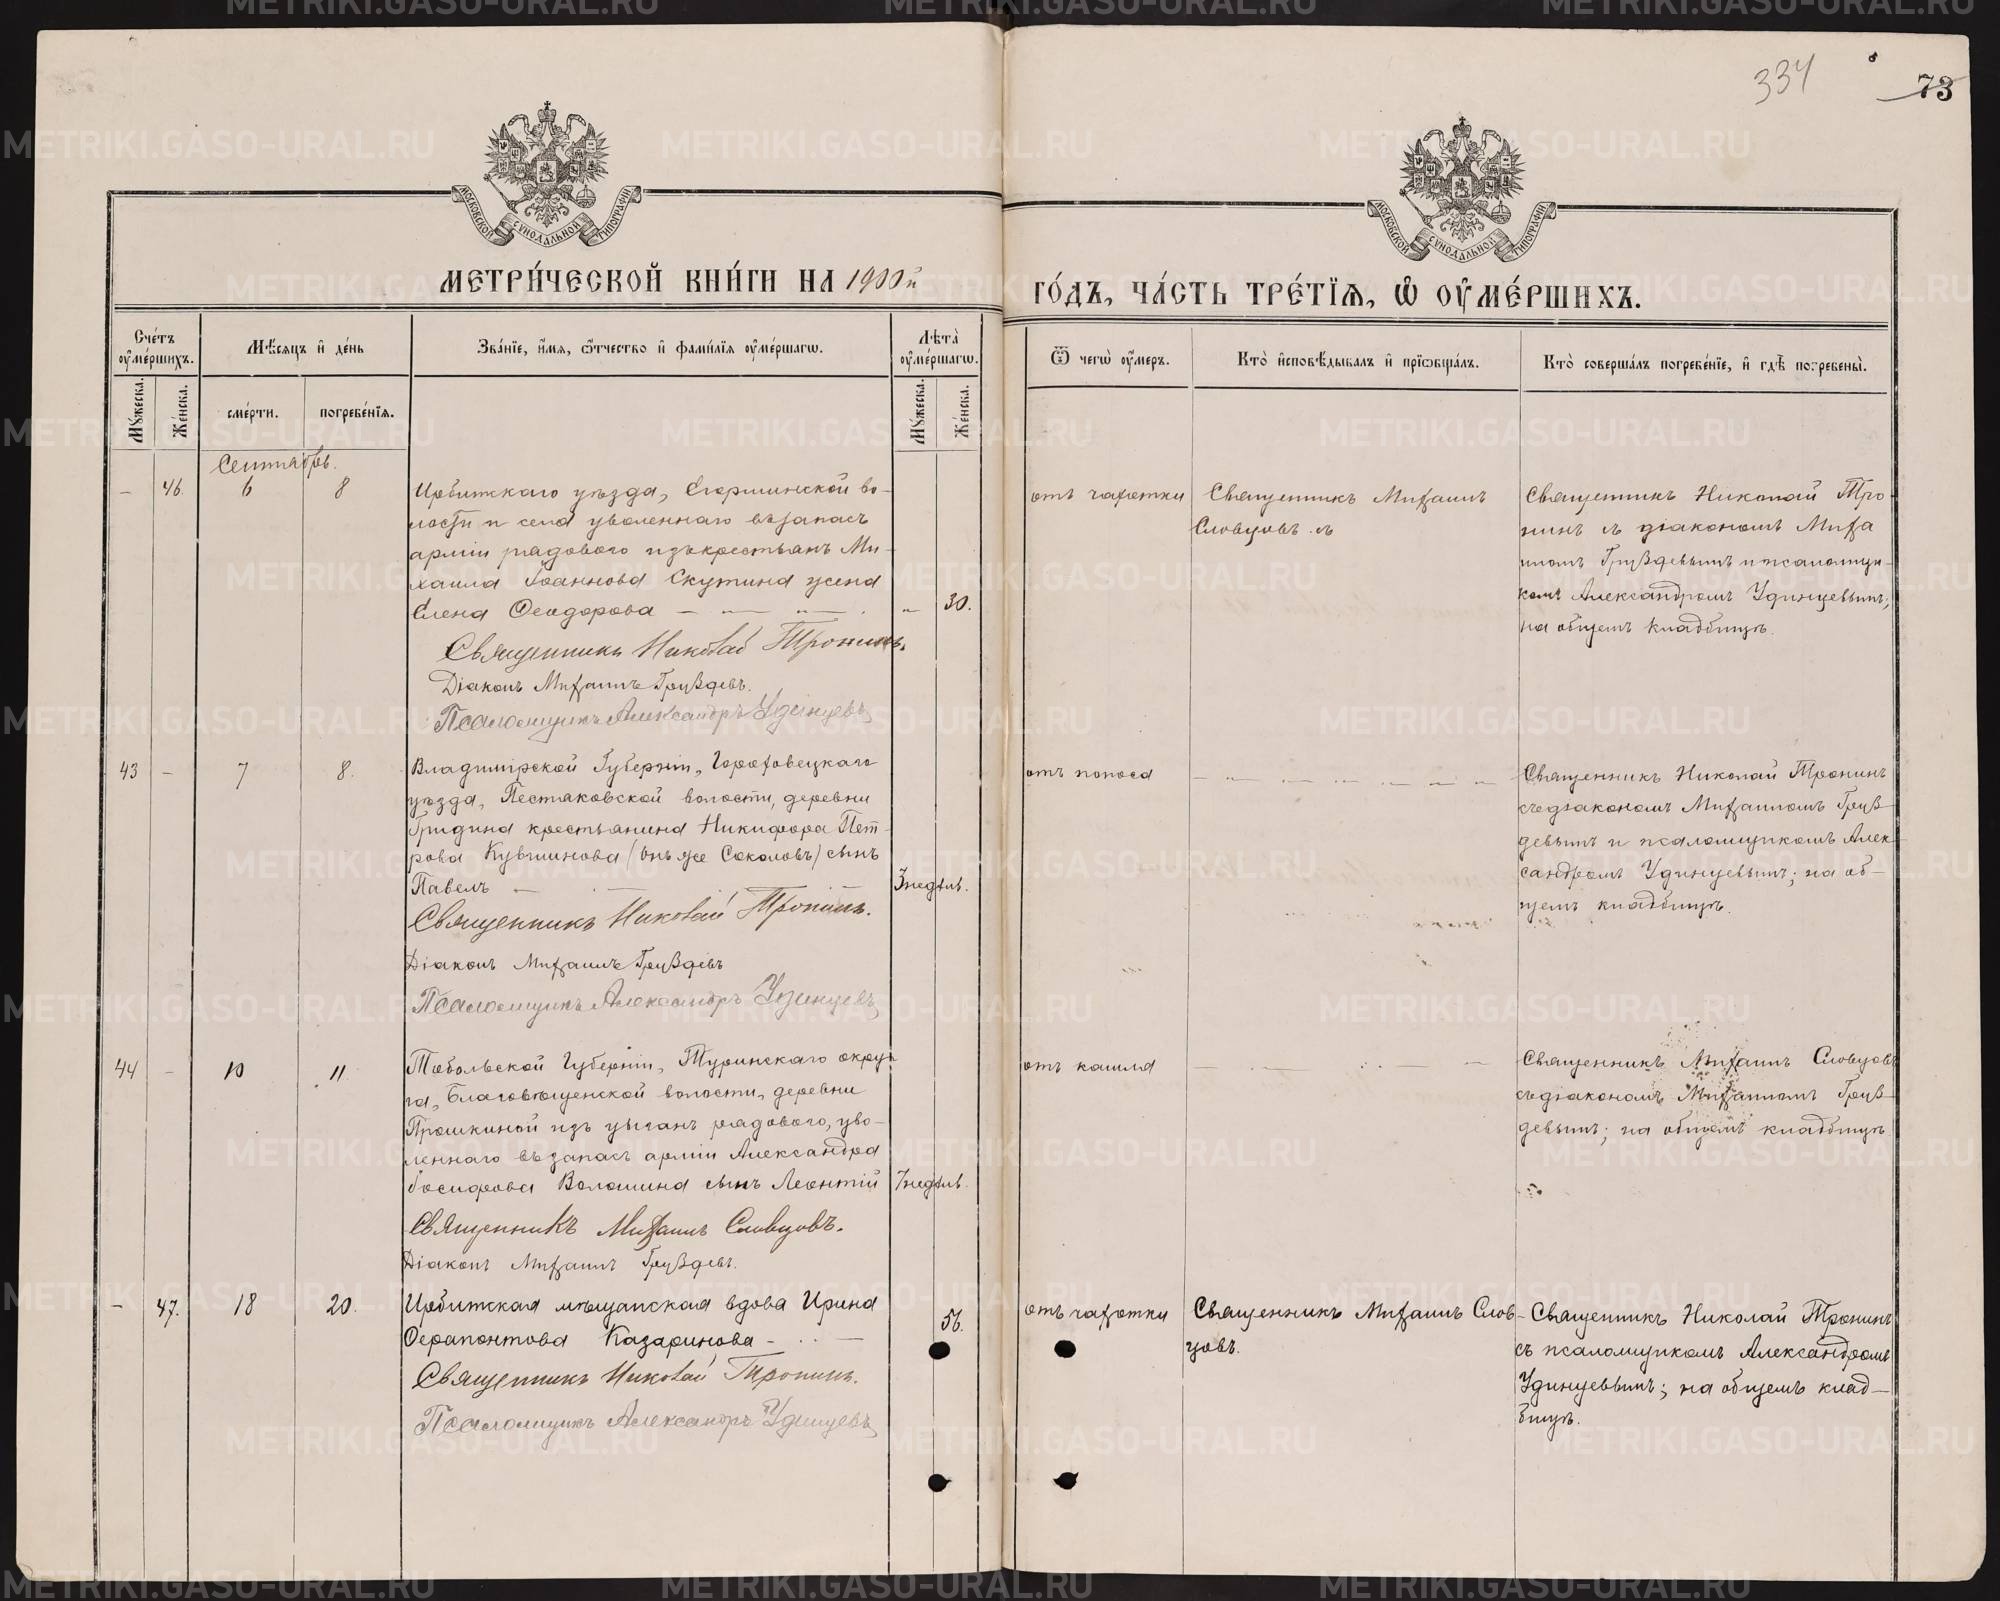 334
73
МОСКОВСКОЙ СѴНОДАЛЬНОЙ ТИПОГРАФІИ
МОСКОВСКОЙ СѴНОДАЛЬНОЙ ТИПОГРАФІИ
МЕТРИ́ЧЕСКОЙ КНИ́ГИ НА 1900й
ГО́ДЪ, ЧА́СТЬ ТРЕ́ТІѦ, Ѡ҆ ОУ҆МЕ́РШИХЪ.
Сче́тъ оу҆ме́ршихъ.
Мꙋ́жеска.
Же́нска.
Мѣ́сяцъ и҆ де́нь
сме́рти.
погребе́нїѧ.
Зва́нїе, и҆́мя, ѻ҆́тчество и҆ фами́лїѧ оу҆ме́ршагѡ.
Лѣ́та оу҆ме́ршагѡ.
Мꙋ́жеска.
Же́нска.
Ѿ чегѡ̀ оу҆́меръ.
Кто̀ и҆сповѣ́дывалъ и҆ прїѡбща́лъ.
Кто̀ соверша́лъ погребе́нїе, и҆ гдѣ̀ погребены̀.
Сентябрь.
— 46. 6 8
Ирбитскаго уѣзда, Егоршинской во-
лости и села уволеннаго въ запасъ
арміи рядового изъ крестьянъ Ми-
хаила Іоаннова Скутина жена
Елена Ѳеодорова — „ — „ — . „ 30.
Священникъ Николай Тронинъ.
Діаконъ Михаилъ Груздевъ.
Псаломщикъ Александръ Удинцевъ
отъ чахотки
Священникъ Михаилъ
Словцовъ.
Священникъ Николай Тро-
нинъ съ діакономъ Миха
иломъ Груздевымъ и псаломщи-
комъ Александромъ Удинцевымъ;
на общемъ кладбищѣ.
43 — 7 8.
Владимірской Губерніи, Гороховецкаго
уѣзда, Пестяковской волости, деревни
Гридина крестьянина Никифора Пет-
рова Кувшинова (онъ же Соколовъ) сынъ
Павелъ — . — 3 недѣль.
Священникъ Николай Тронинъ.
Діаконъ Михаилъ Груздевъ
Псаломщикъ Александръ Удинцевъ
отъ поноса
— „ — „ — „ — „ —
Священникъ Николай Тронинъ
съ діакономъ Михаиломъ Груз-
девымъ и псаломщикомъ Алек-
сандромъ Удинцевымъ; на об-
щемъ кладбищѣ.
44 — 10 11
Тобольской Губерніи, Туринскаго окру-
га, Благовѣщенской волости, деревни
Прошкиной изъ цыганъ рядового, уво-
леннаго въ запасъ арміи Александра
Іосифова Волошина сынъ Леонтій 7 недѣль.
Священникъ Михаилъ Словцовъ.
Діаконъ Михаилъ Груздевъ.
отъ кашля
Священникъ Михаилъ Словцовъ
съ діакономъ Михаиломъ Груз-
девымъ; на общемъ кладбищѣ
— 47. 18 20.
Ирбитская мѣщанская вдова Ирина
Ѳерапонтова Казаринова — . . — 56.
Священникъ Николай Тронинъ.
Псаломщикъ Александръ Удинцевъ
отъ чахотки
Священникъ Михаилъ Слов-
цовъ.
Священникъ Николай Тронинъ
съ псаломщикомъ Александромъ
Удинцевымъ; на общемъ клад-
бищѣ.
METRIKI.GASO-URAL.RU